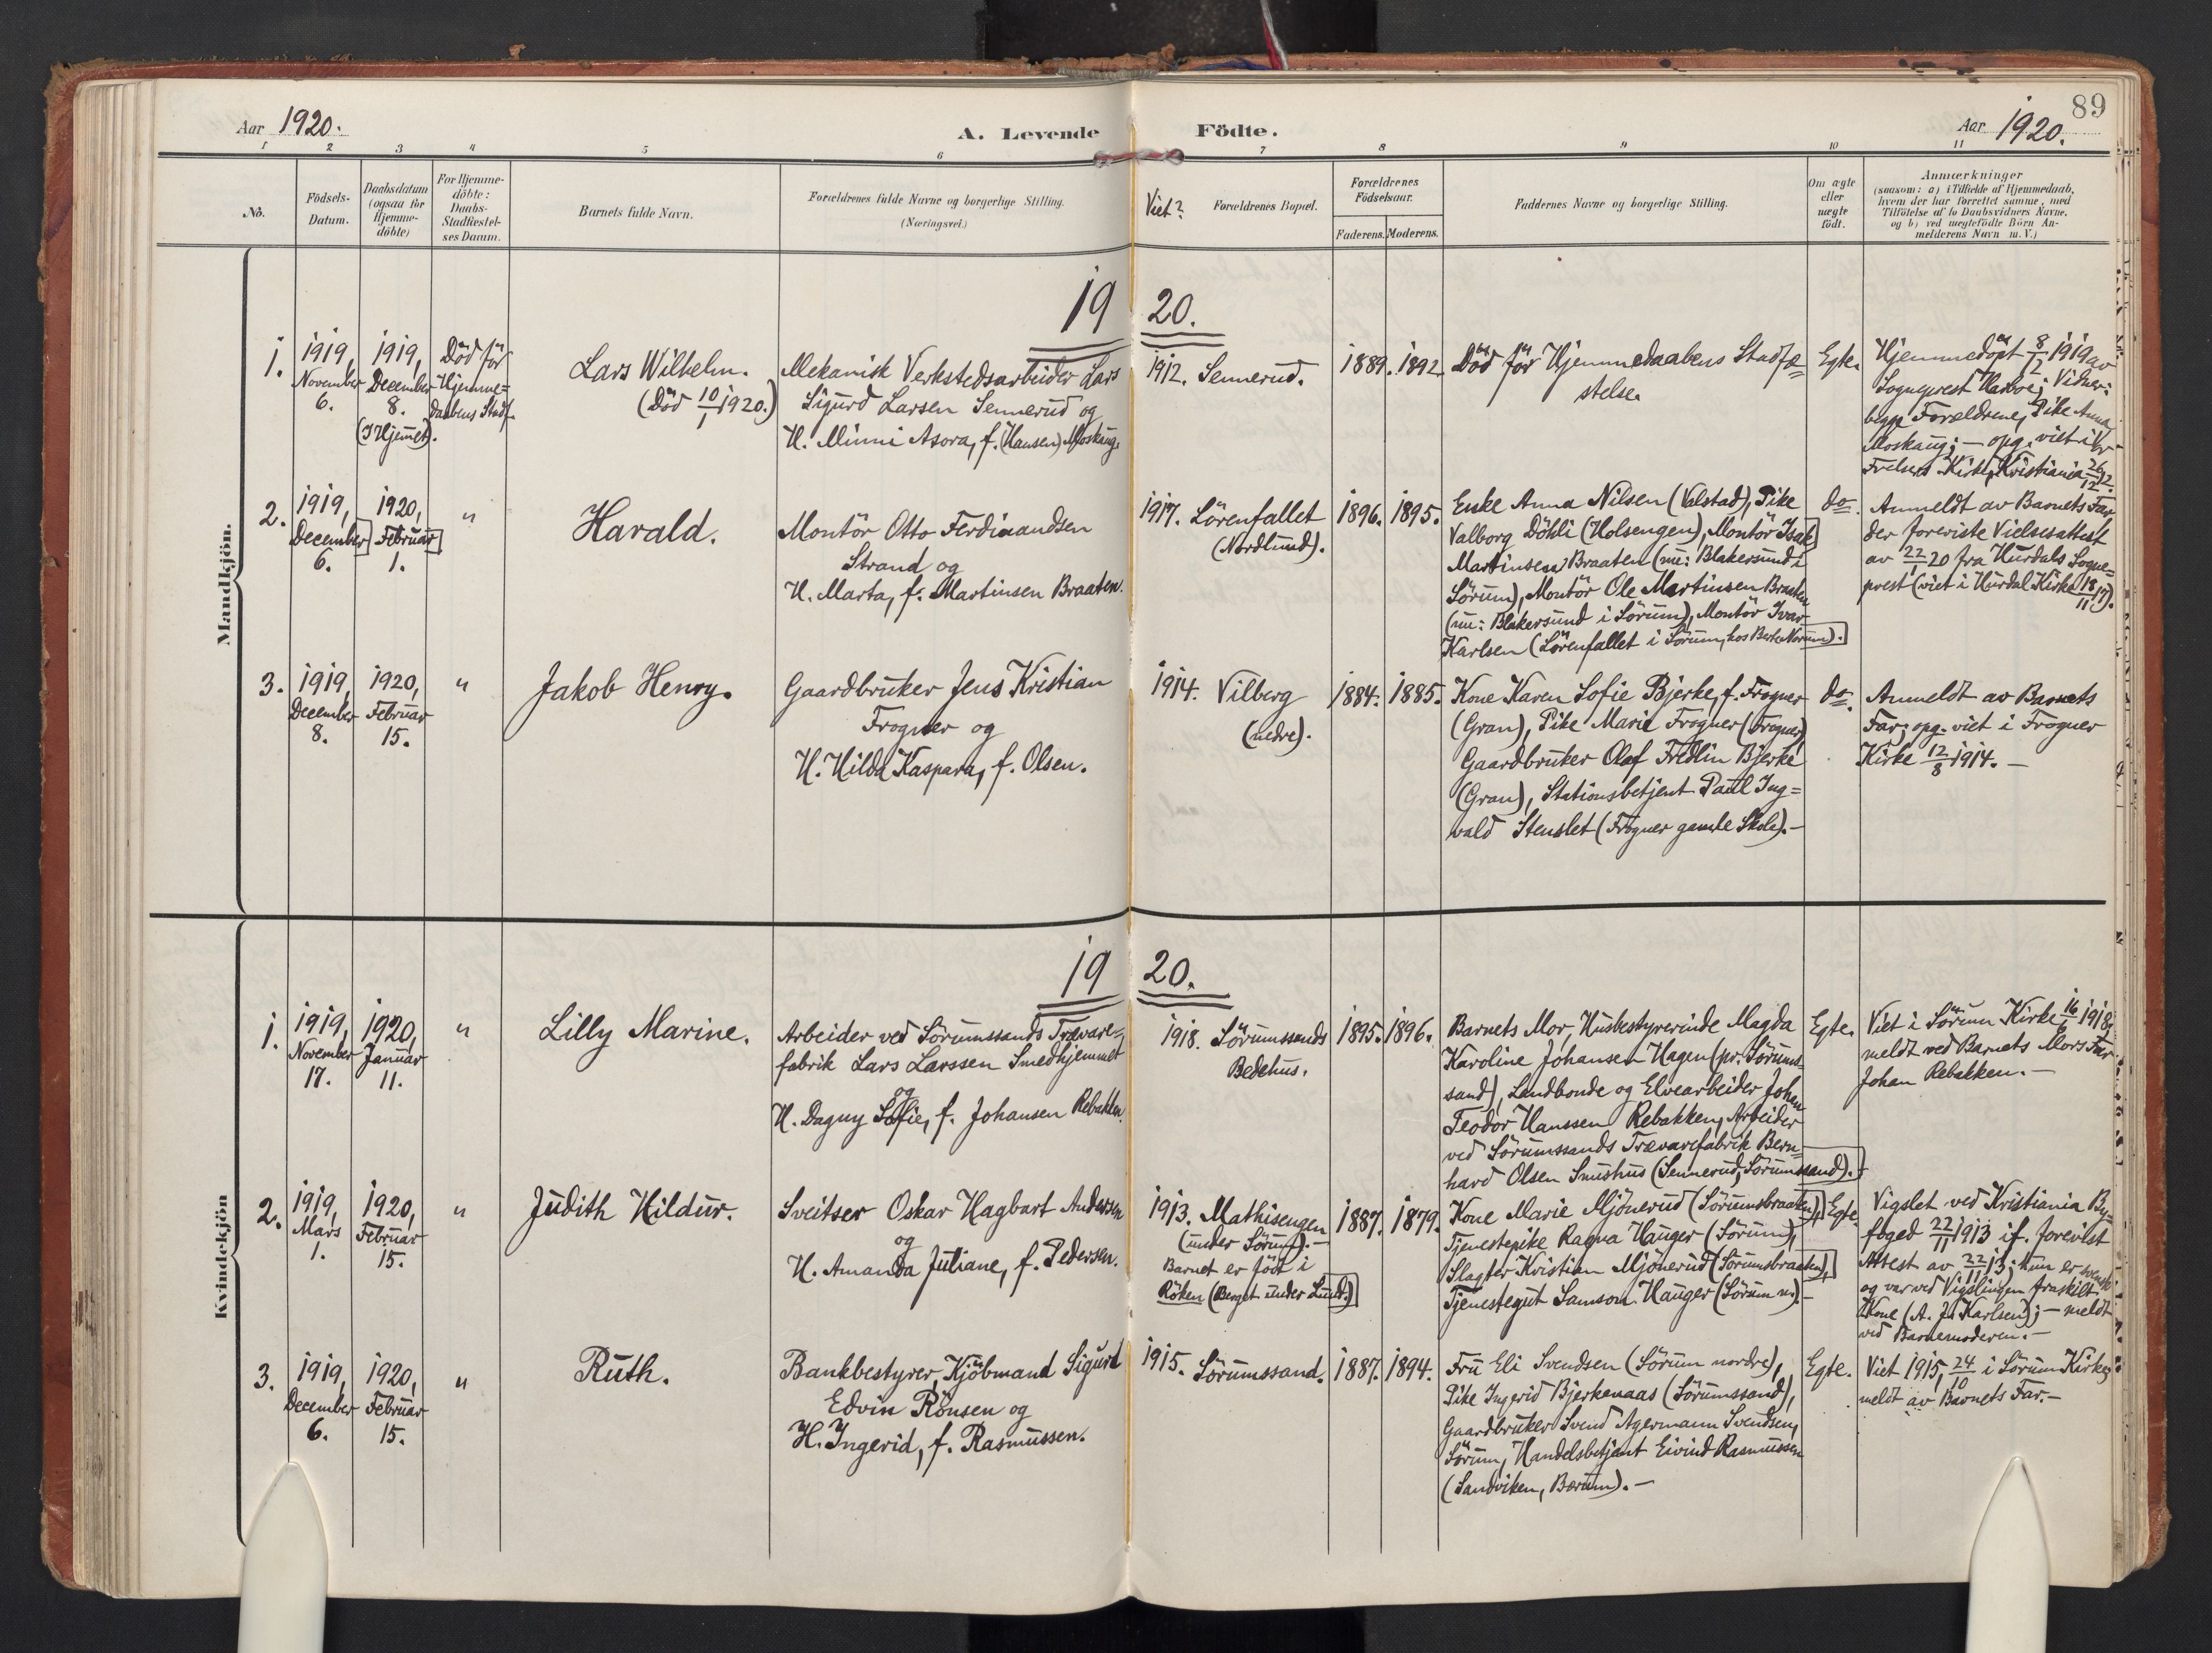 89
Aar 1920.
A. Levende Födte.
Aar 1920.
1 2 3 4 5 6 7 8 9 10 11
No.
Födsels-
Datum.
Daabsdatum
(ogsaa for
Hjemme-
döbte)
For Hjemme-
döbte:
Daabs-
Stadfæstel-
ses Datum.
Barnets fulde Navn.
Forældrenes fulde Navne og borgerlige Stilling.
(Næringsvei.)
Viet?
Forældrenes Bopæl.
Forældrenes
Födselsaar.
Faderens. Moderens.
Faddernes Navne og borgerlige Stilling.
Om ægte
eller
uægte
födt.
Anmærkninger
(saasom: a) i Tilfælde af Hjemmedaab,
hvem der har forrettet samme, med
Tilföielse af to Daabsvidners Navne,
og b) ved uægtefödte Börn An-
melderens Navn m. V.)
Mandkjön.
19 20.
1.
1919,
November
6.
1919,
December
8.
(I Hjemmet).
Död för
Hjemme=
daabens Stadf.
Lars Wilhelm.
(Död 10/1 1920.)
Mekanisk Verkstedsarbeider Lars
Sigurd Larsen Sennerud og
H. Minni Asora, f. (Hansen) Moskaug.
1912. Sennerud.
1889. 1892.
Död för Hjemmedaabens Stadfæ=
stelse.
Egte.
Hjemmedöpt 8/12 1919 av
Sogneprest Harboe; Vidner:
begge Forældrene, Pike Anna
Moskaug; — opg. viet i Vor
Frelsers Kirke, Kristiania 26/12 12.
2.
1919,
December
6.
1920,
Februar
1.
"
Harald.
Montör Otto Ferdinandsen
Strand og
H. Marta, f. Martinsen Braaten.
1917. Lörenfallet
(Nordlund).
1896. 1895.
Enke Anna Nilsen (Valstad), Pike
Valborg Döhli (Holsengen), Montör Isak
Martinsen Braaten (nu: Blakersund i
Sörum), Montör Ole Martinsen Braaten
(nu: Blakersund i Sörum), Montör Ivar
Karlsen (Lörenfallet i Sörum, hos Berte Norum).
do.
Anmeldt av Barnets Far
der foreviste Vielsesattest
av 22/1 20 fra Hurdals Sogne=
prest (viet i Hurdal Kirke 18/11 17).
3.
1919,
December
8.
1920,
Februar
15.
"
Jakob Henry.
Gaardbruker Jens Kristian
Frogner og
H. Hilda Kaspara, f. Olsen.
1914. Vilberg
(nedre).
1884. 1885.
Kone Karen Sofie Bjerke, f. Frogner
(Gran), Pike Marie Frogner (Frogner)
Gaardbruker Olaf Fredlin Bjerke
(Gran), Stationsbetjent Paul Ing=
vald Stenslet (Frogner gamle Skole).—
do.
Anmeldt av Barnets
Far; opg. viet i Frogner
Kirke 12/8 1914. —
Kvindekjön
19 20.
1.
1919,
November
17.
1920,
Januar
11.
"
Lilly Marine.
Arbeider ved Sörumssands Trævare=
fabrik Lars Larssen Smedhjemmet
og
H. Dagny Sofie, f. Johansen Rebakken.
1918. Sörumssands
Bedehus.
1895. 1896.
Barnets Mor, Husbestyrerinde Magda
Karoline Johansen Hagen (pr. Sörums=
sand), Landbonde og Elvearbeider Johan
Teodor Hanssen Rebakken, Arbeider
ved Sörumssands Trævarefabrik Bern=
hard Olsen Smushus (Sennerud, Sörumssand).—
Egte.
Viet i Sörum Kirke 16/6 1918;
meldt ved Barnets Mors Far
Johan Rebakken. —
2.
1919,
Mars
1.
1920,
Februar
15.
"
Judith Hildur.
Sveitser Oskar Hagbart Andersen
og
H. Amanda Juliane, f. Pedersen.
1913. Mathisengen
(under Sörum). —
Barnet er födt i
Röken (Berget under Lund.)
1887. 1879.
Kone Marie Mjönerud (Sörumsbraaten),
Tjenestepike Ragna Hauger (Sörum),
Slagter Kristian Mjönerud (Sörumsbraaten),
Tjenestegut Samson Hauger (Sörum nr). —
Egte.
Vigslet ved Kristiania By=
foged 22/11 1913 if. forevist
Attest av 22/11 13; hun er svensk
og var ved Vigslingen fraskilt
Kone (A. J. Karlsen); — meldt
ved Barnemoderen. —
3.
1919,
December
6.
1920,
Februar
15.
"
Ruth.
Bankbestyrer, Kjöbmand Sigurd
Edvin Rönsen og
H. Ingerid, f. Rasmussen.
1915. Sörumssand.
1887. 1894.
Fru Eli Svendsen (Sörum nordre),
Pike Ingerid Bjerkenaas (Sörumssand),
Gaardbruker Svend Agermann Svendsen,
Sörum, Handelsbetjent Eivind Rasmussen
(Sandviken, Bærum). —
Egte.
Viet 1915, 24/10 i Sörum Kirke;
meldt av Barnets Far. —